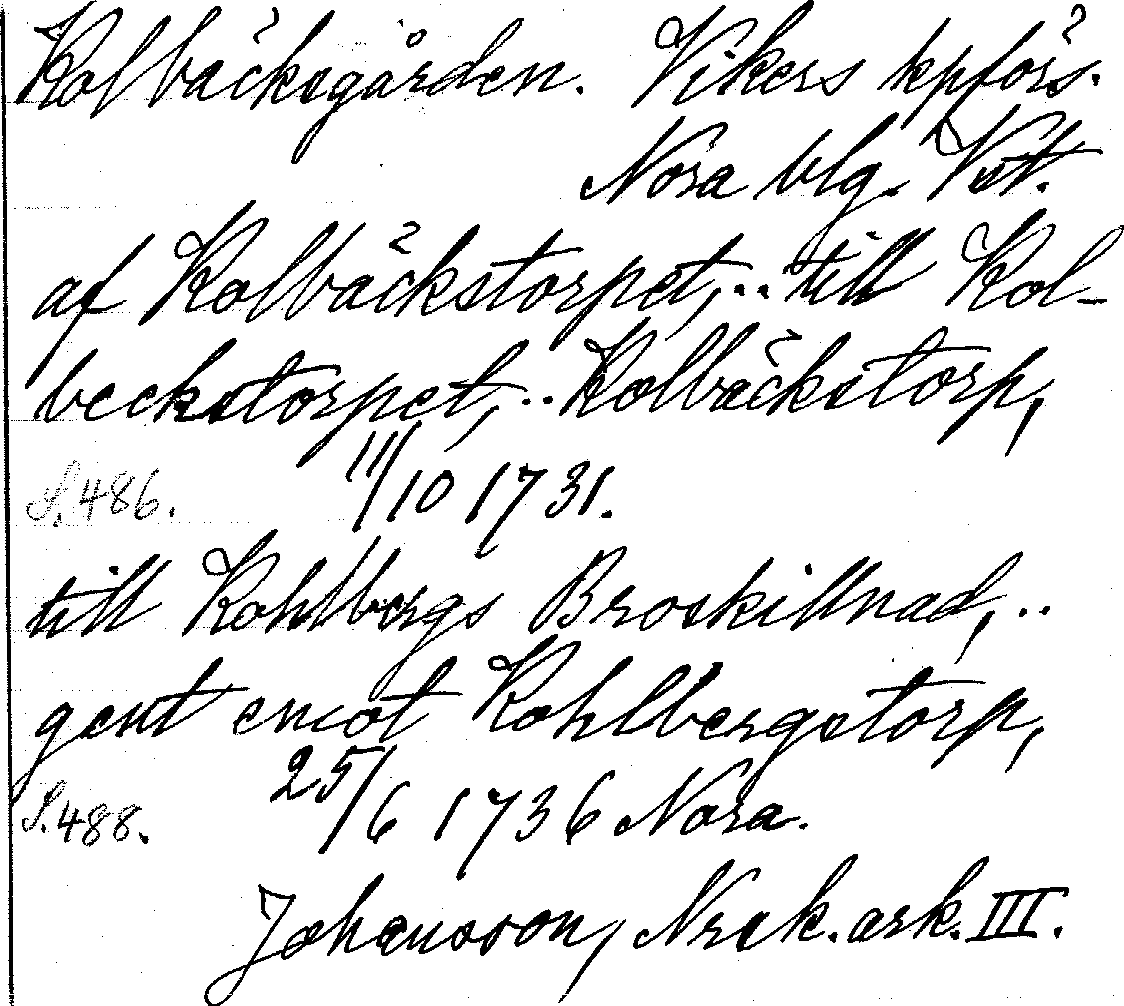 Kolbäcksgården. Vikers kpförs.
Nora blg. Vst.
af Kolbäckstorpet,.. till Kol-
beckstorpet,.. Kolbäckstorp,
S. 486. 11/10 1731.
till Kohlbergs Broskillnad,..
gent emot Kohlbergstorp,
S. 488. 25/6 1736 Nora.
Johansson, Nrsk. ark. III.